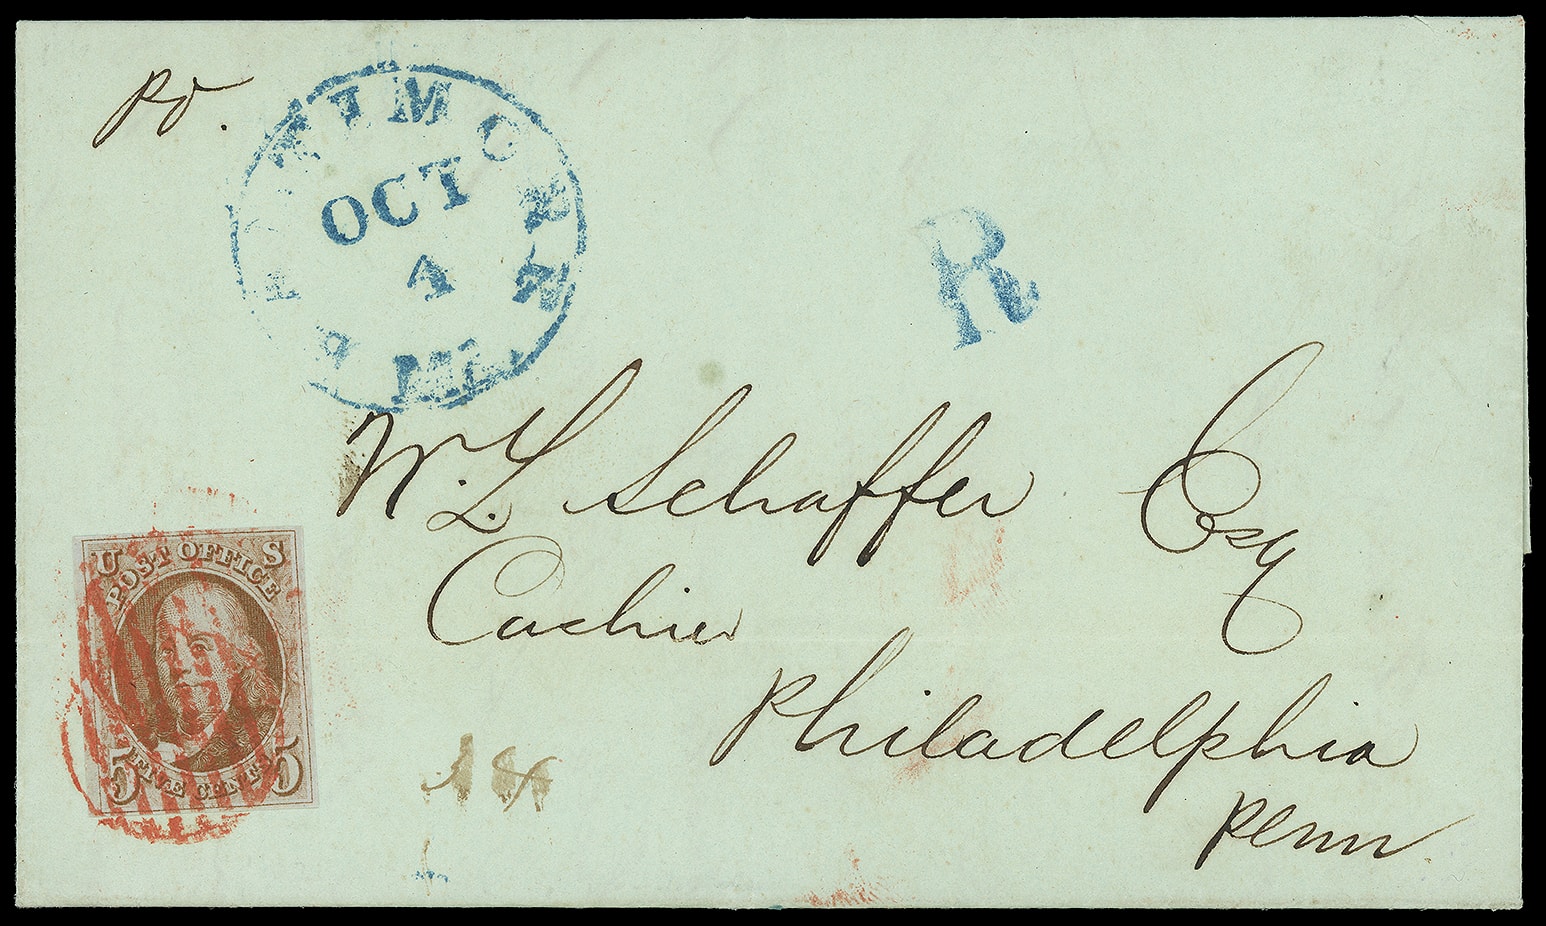 pd.
BALTIMORE
OCT
4
Md.
R
W. L. Schaffer Esq
Cashier
Philadelphia
Penn
U S
POST OFFICE
FIVE CENTS
5 5